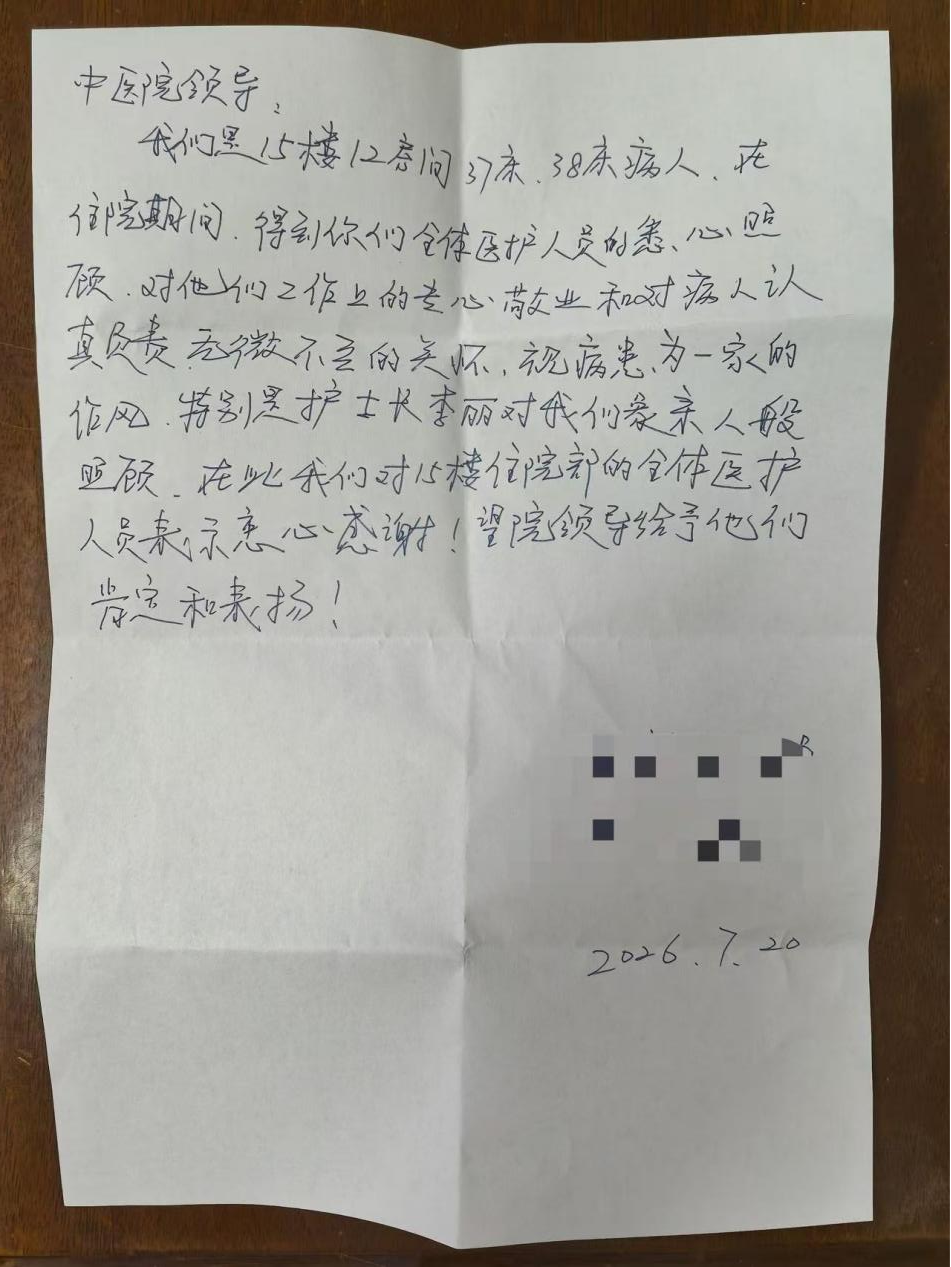 中医院领导：
我们是15楼12房间37床、38床病人、在
住院期间、得到你们全体医护人员的悉心照
顾、对他们工作上的专心敬业和对病人认
真负责、无微不至的关怀、视病患为一家的
作风、特别是护士长李丽对我们象亲人般
照顾、在此我们对15楼住院部的全体医护
人员表示衷心感谢！望院领导给予他们
肯定和表扬！
2026.7.20